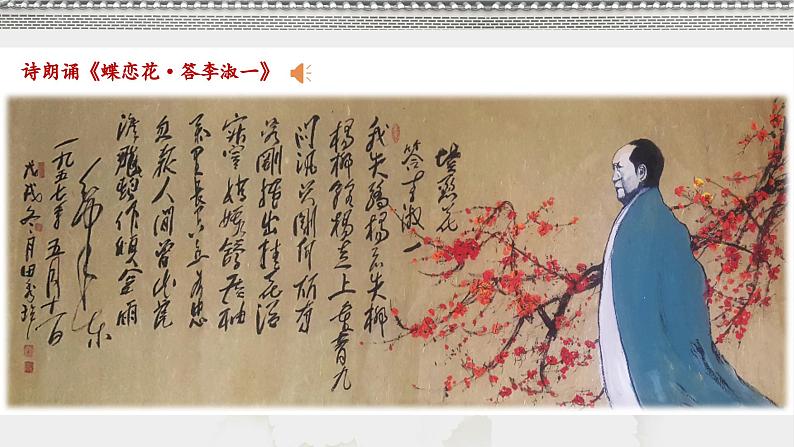 诗朗诵《蝶恋花·答李淑一》
蝶恋花
答李淑一
我失骄杨君失柳
杨柳轻扬直上重霄九
问讯吴刚何所有
吴刚捧出桂花酒
寂寞嫦娥舒广袖
万里长空且为忠
忽报人间曾伏虎
泪飞顿作倾盆雨
毛泽东
一九五七年五月十一日
戊戌冬月田秀